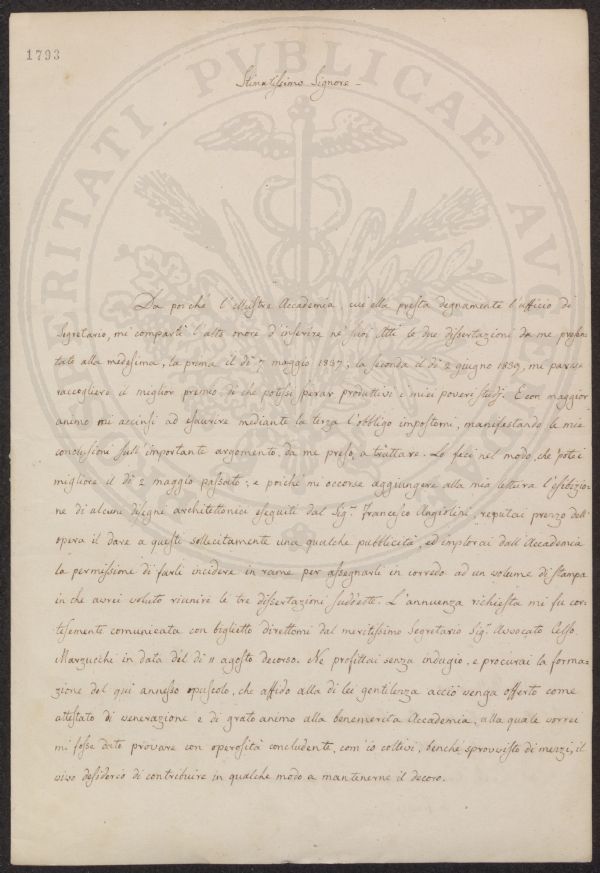 1793
Stimatissimo Signore -
Da poiché l'illustre Accademia, cui ella presta degnamente l'ufficio di
Segretario, mi compartì l'alto onore d'inserire ne' suoi Atti le due dissertazioni da me presen
tate alla medesima, la prima il dì 7 maggio 1837; la seconda il dì 2 giugno 1839, mi parve
raccogliere il miglior premio di che potessi sperar produttivi i miei poveri studj. E con maggior
animo mi accinsi ad esaurire mediante la terza l'obbligo impostomi, manifestando le mie
conclusioni sull'importante argomento, da me preso, a trattare. Lo feci nel modo, che potei
migliore il dì 2 maggio passato; e poiché mi occorse aggiungere alla mia lettura l'esibizio-
ne di alcuni disegni architettonici eseguiti dal Sig.r Francesco Angiolini, reputai prezzo dell'
opera il dare a questi sollecitamente una qualche pubblicità, ed implorai dall'Accademia
la permissione di farli incidere in rame per assegnarli in corredo ad un volume di stampa
in che avrei voluto riunire le tre dissertazioni suddette. L'annuenza richiesta mi fu cor
tesemente comunicata con biglietto direttomi dal meritissimo Segretario Sig.r Avvocato Celso
Marzucchi in data del dì 11 agosto decorso. Ne profittai senza indugio, e procurai la forma-
zione del qui annesso opuscolo, che affido alla di lei gentilezza acciò venga offerto come
attestato di venerazione e di grato animo alla benemerita Accademia, alla quale vorrei
mi fosse dato provare con operosità concludente, com'io coltivi, benché sprovvisto di mezzi, il
vivo desiderio di contribuire in qualche modo a mantenerne il decoro.